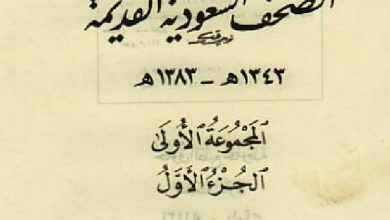 الصحف السعودية القديمة
١٣٤٣هـ - ١٣٨٣هـ
المَجْمُوعَةُ الأُولَى
الجُزءُ الأَوَّلُ